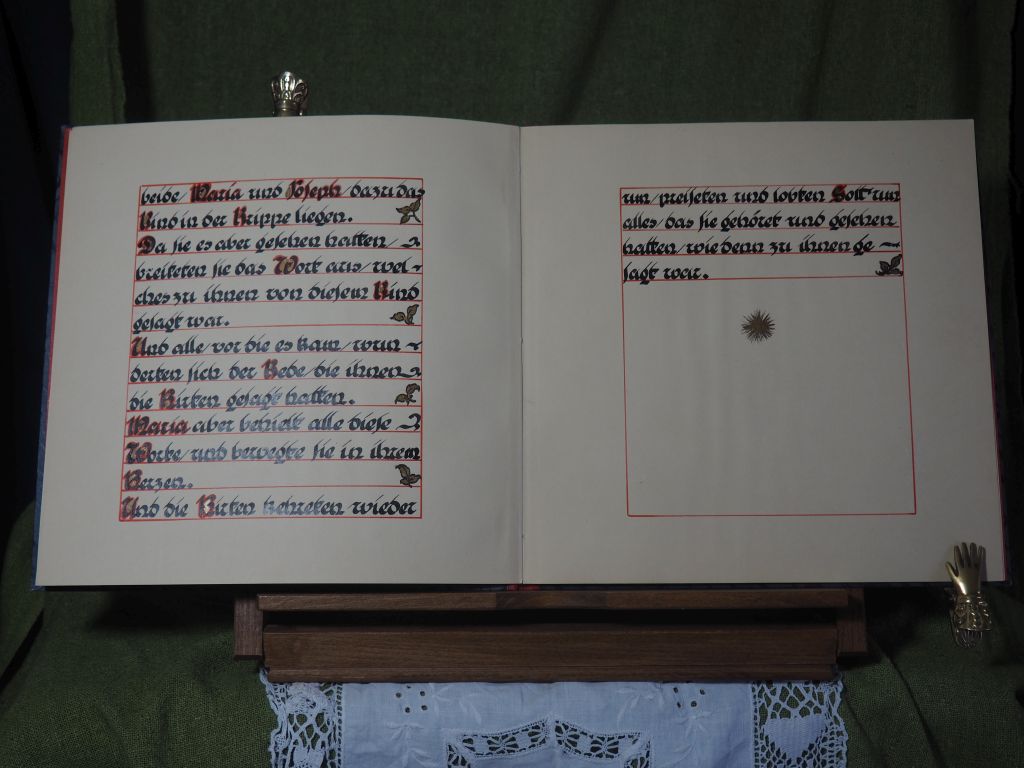 beide/ Maria und Joseph/ dazu das
Kind in der Krippe liegen.
Da sie es aber gesehen hatten/
breiteten sie das Wort aus/ wel-
ches zu ihnen von diesem Kind
gesagt war.
Und alle/ vor die es kam/ wun-
derten sich der Rede/ die ihnen
die Hirten gesagt hatten.
Maria aber behielt alle diese
Worte/ und bewegte sie in ihrem
Herzen.
Und die Hirten kehreten wieder
um/ preiseten und lobten Gott um
alles/ das sie gehöret und gesehen
hatten/ wie denn zu ihnen ge-
sagt war.